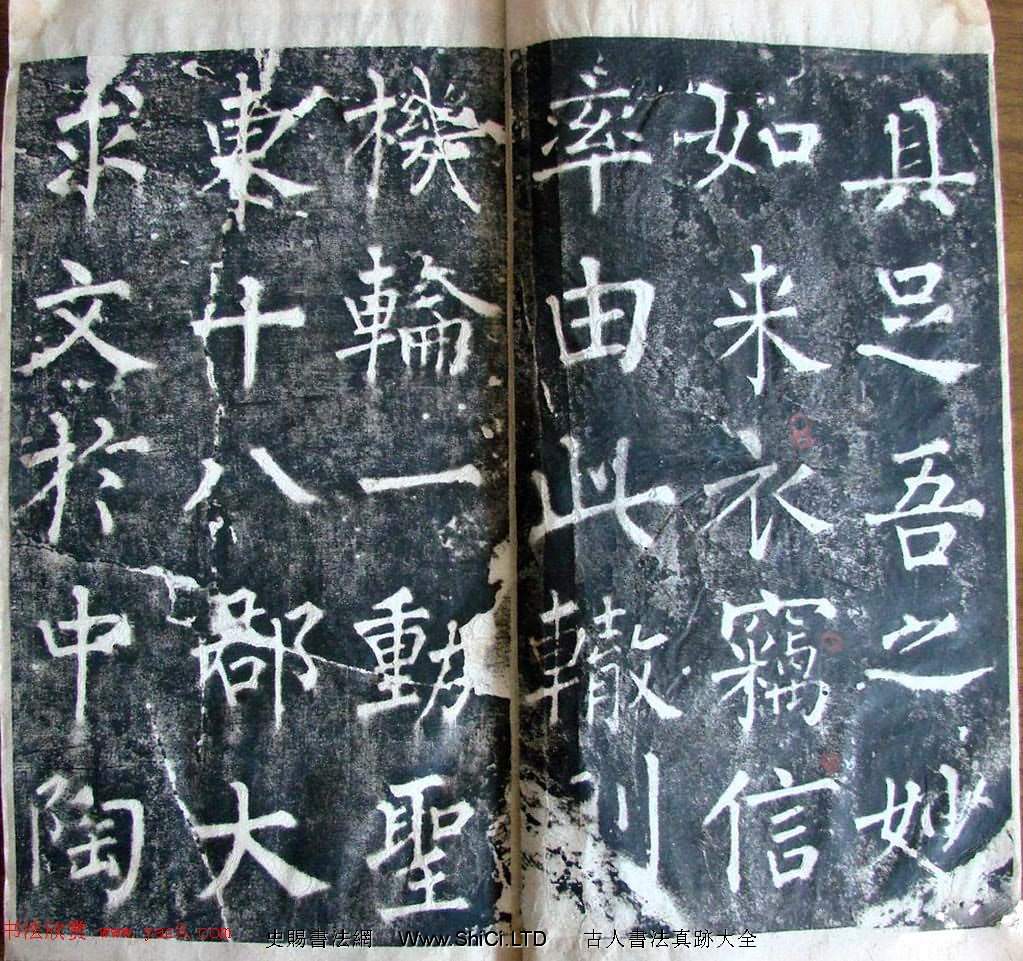 具足吾之妙
如来衣竊信
率由此轍
機輪一動聖
東十八鄙大
求文於中陶
书法欣赏 www.yac8.com
史賜書法網 Www.ShiCi.LTD 古人書法真跡大全